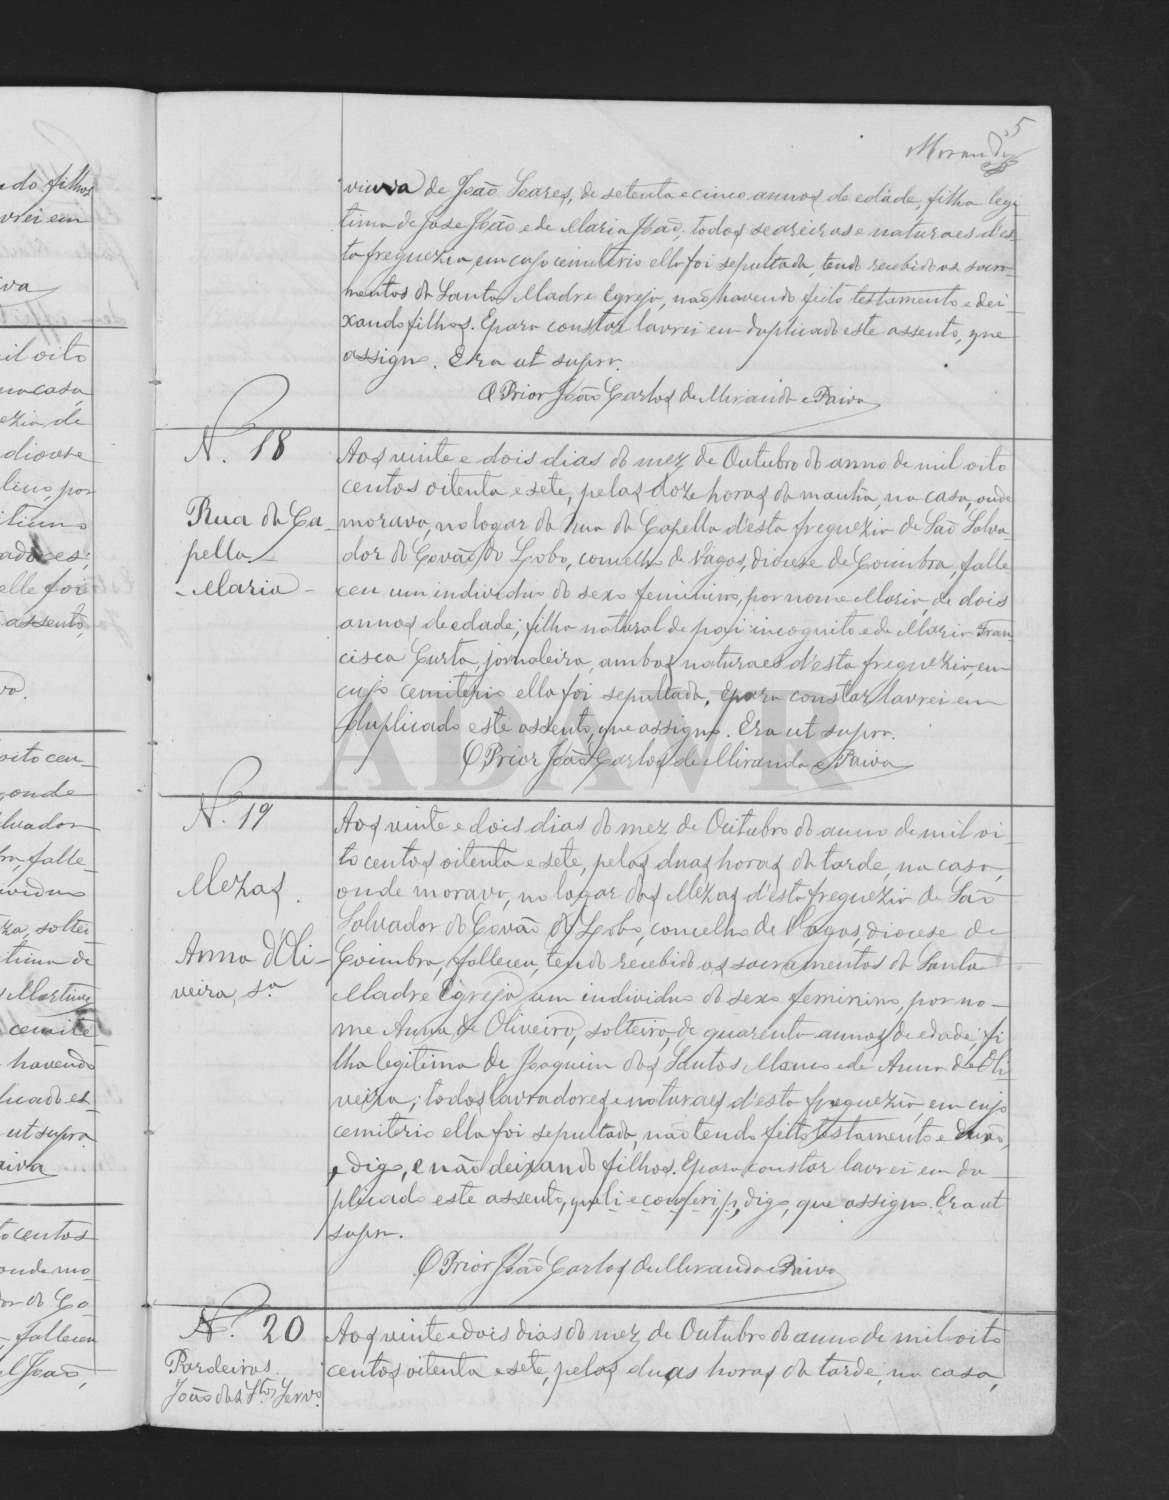 5
viuva de João Soares, de setenta e cinco annos de edade, filha legi
tima de José João e de Maria João, todos seareiros e naturaes d'es-
ta freguezia, em cujo cemiterio ella foi sepultada, tendo recebido os sacra-
mentos da Santa Madre Egreja, não havendo feito testamento e dei-
xando filhos. E para constar lavrei em duplicado este assento, que
assigno. Era ut supra.
O Prior João Carlos de Miranda e Paiva
N.º 18
Rua da Ca-
pella
- Maria -
Aos vinte e dois dias do mez de Outubro do anno de mil oito
centos oitenta e sete, pelas doze horas da manhã, na casa, onde
morava, no logar da rua da Capella d'esta freguezia de São Salva-
dor do Covão do Lobo, concelho de Vagos, diocese de Coimbra, falle
ceu um individuo do sexo feminino, por nome Maria, de dois
annos de edade; filha natural de pai incognito e de Maria Fran-
cisca Curta, jornaleira, ambas naturaes d'esta freguezia, em
cujo cemiterio ella foi sepultada. E para constar lavrei em
duplicado este assento, que assigno. Era ut supra.
O Prior João Carlos de Miranda e Paiva
N.º 19
Mezas.
Anna d'Oli-
veira, s.ª
Aos vinte e dois dias do mez de Outubro do anno de mil oi-
to centos oitenta e sete, pelas duas horas da tarde, na casa,
onde morava, no logar das Mezas d'esta freguezia de São
Salvador do Covão do Lobo, concelho de Vagos, diocese de
Coimbra, falleceu, tendo recebido os sacramentos da Santa
Madre Egreja, um individuo do sexo feminino, por no-
me Anna de Oliveira, solteira, de quarenta annos de edade; fi
lha legitima de Joaquim dos Santos e de Anna de Oli-
veira; todos lavradores e naturaes d'esta freguezia, em cujo
cemiterio ella foi sepultada, não tendo feito testamento e
, digo, e não deixando filhos. E para constar lavrei em du
plicado este assento, que li e conferi, digo, que assigno. Era ut
supra.
O Prior João Carlos de Miranda e Paiva
N.º 20
Pardeiros
João dos St.os
Aos vinte e dois dias do mez de Outubro do anno de mil oito
centos oitenta e sete, pelas duas horas da tarde, na casa,
ADAVR